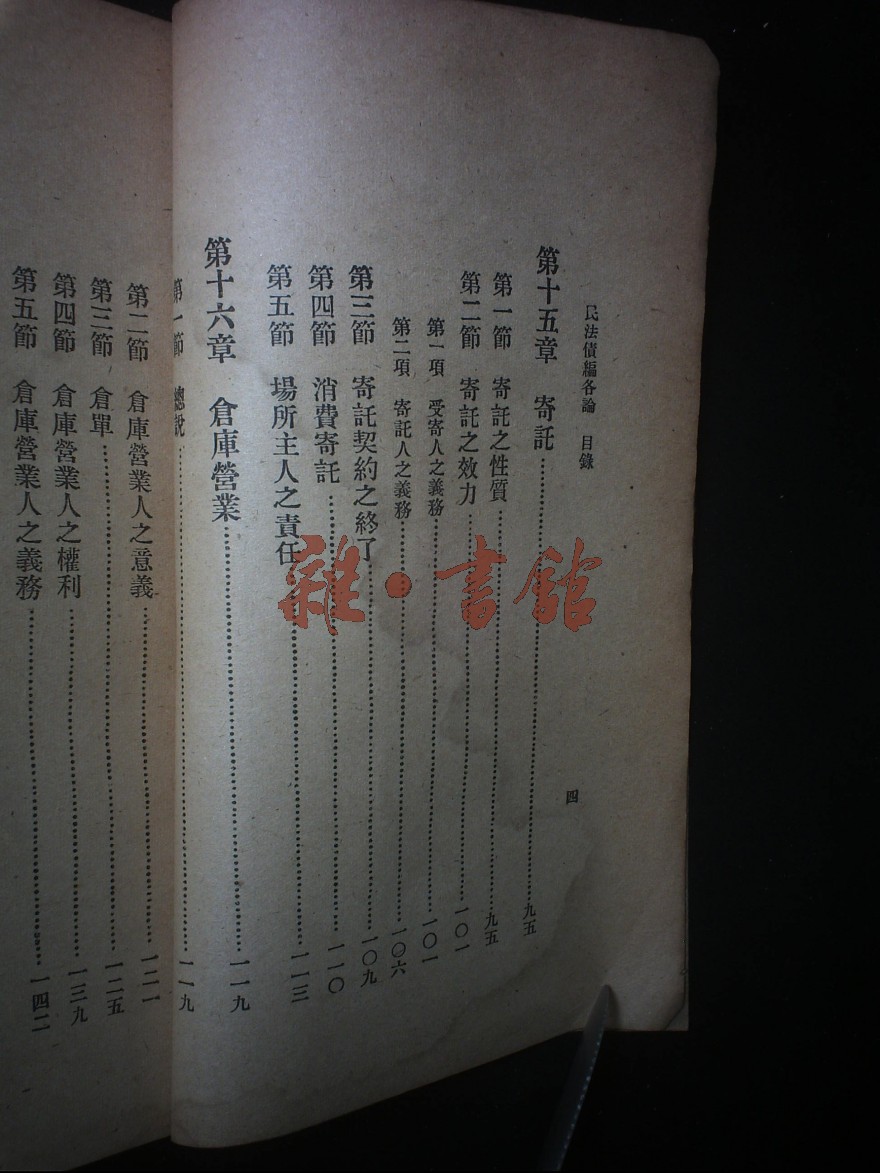 民法債編各論　目錄
四
第十五章　寄託……九五
第一節　寄託之性質……九五
第二節　寄託之效力……一〇一
第一項　受寄人之義務……一〇一
第二項　寄託人之義務……一〇六
第三節　寄託契約之終了……一〇九
第四節　消費寄託……一一〇
第五節　場所主人之責任……一一三
第十六章　倉庫營業……一一九
第一節　總說……一一九
第二節　倉庫營業人之意義……一二一
第三節　倉單……一二五
第四節　倉庫營業人之權利……一三九
第五節　倉庫營業人之義務……一四二
雜·書館